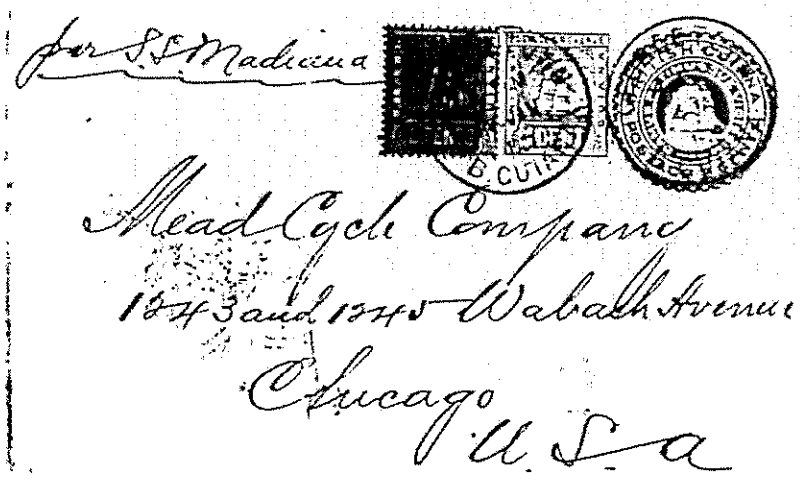 per S.S. Madiana
B. GUIA
BRITISH GUIANA
Mead Cycle Company
1243 and 1245 Wabash Avenue
Chicago
U.S.a